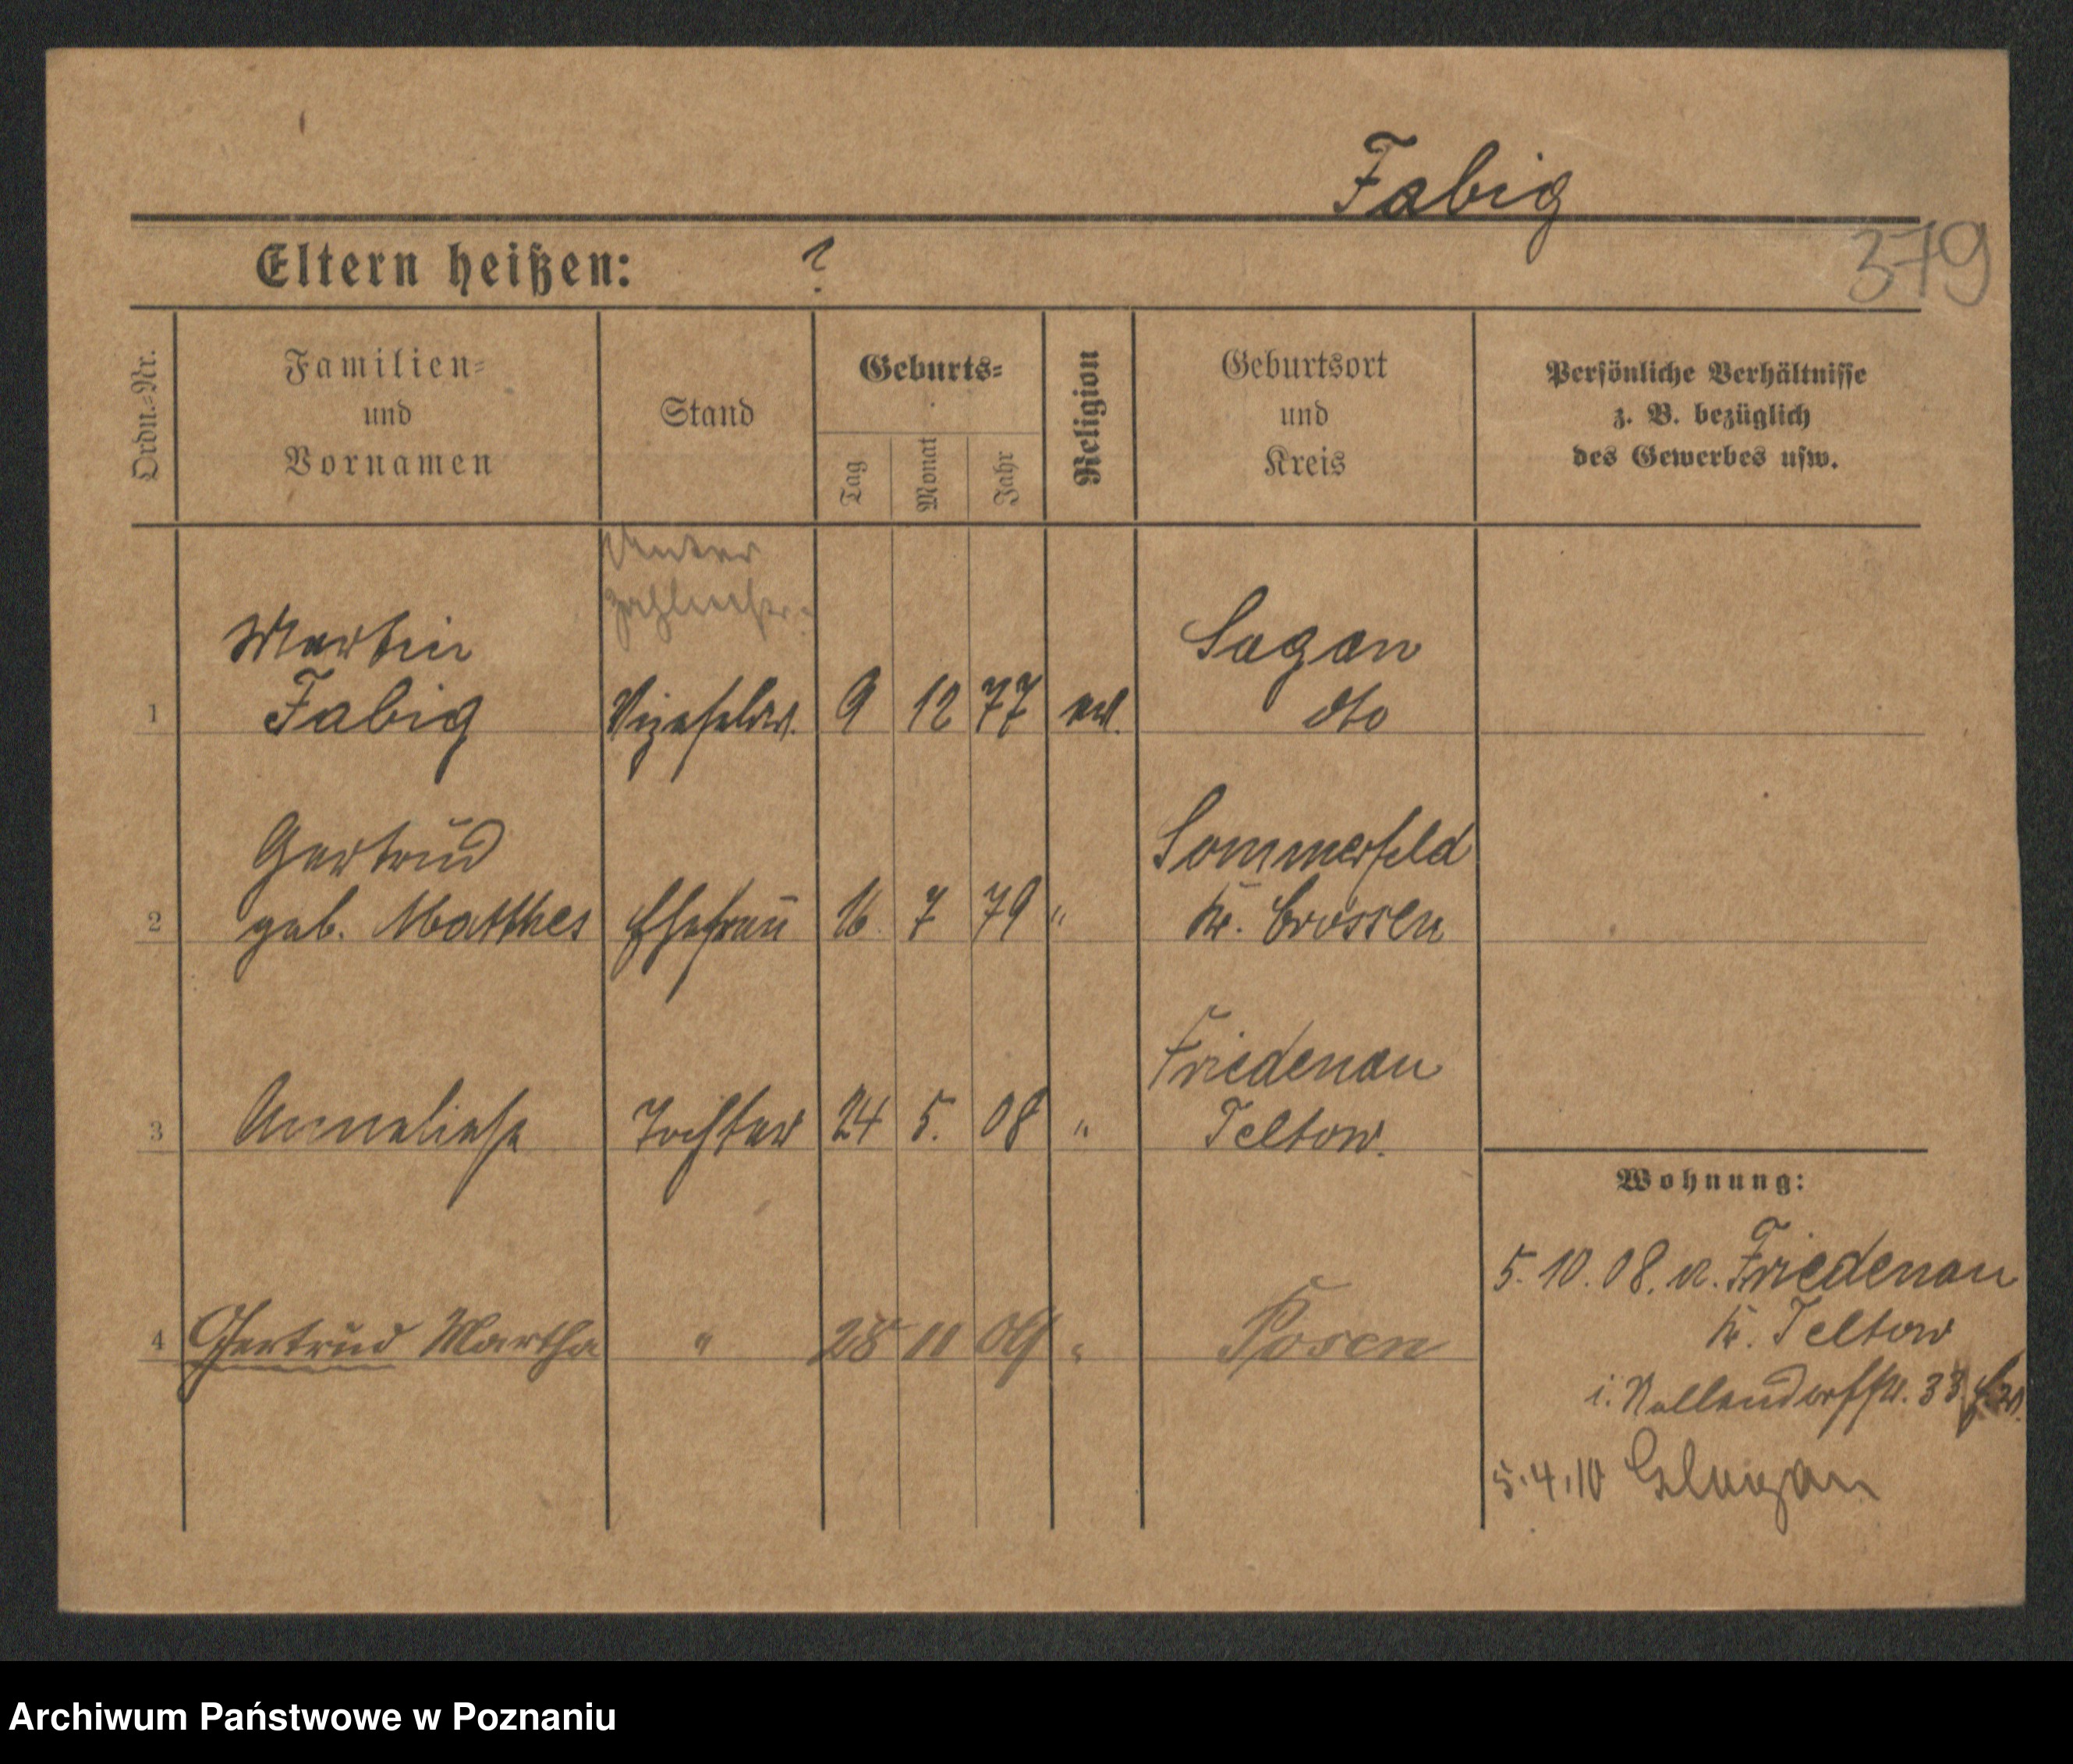 Fabig
379
Eltern heißen: ?
Ordn.-Nr.
Familien-
und
Vornamen
Stand
Geburts-
Tag
Monat
Jahr
Religion
Geburtsort
und
Kreis
Persönliche Verhältnisse
z. B. bezüglich
des Gewerbes usw.
Unter
zahlmstr.
Martin
Sagan
1 Fabig Vizefeldw. 9 12 77 evl. dto
Gertrud
Sommerfeld
2 geb. Matthes Ehefrau 16 7 79 " Kr. Crossen
Friedenau
3 Anneliese Tochter 24 5. 08 " Teltow.
Wohnung:
5.10.08. v. Friedenau
Kr. Teltow
4 Gertrud Martha " 28 11 09 " Posen
i. Nollendorfstr. 33
5.4.10 Glogau
Archiwum Państwowe w Poznaniu